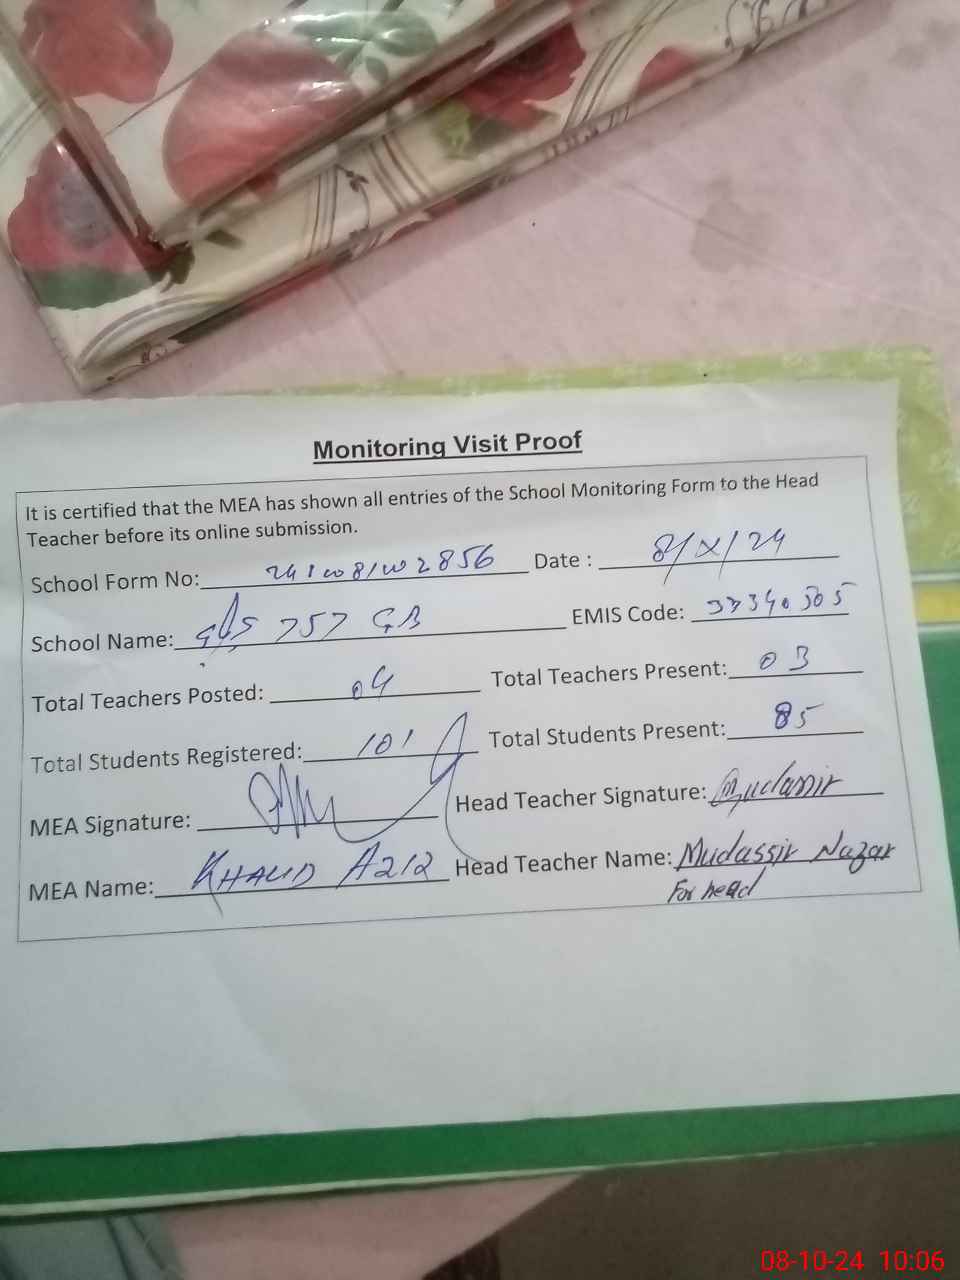 Monitoring Visit Proof
It is certified that the MEA has shown all entries of the School Monitoring Form to the Head
Teacher before its online submission.
School Form No: Date : 8/X/24
School Name: 757 GB EMIS Code:
Total Teachers Posted: 04 Total Teachers Present: 03
Total Students Registered: 101 Total Students Present: 85
MEA Signature: Head Teacher Signature: Mudassir
MEA Name: KHALID AZIZ Head Teacher Name: Mudassir Nazar
For head
08-10-24 10:06